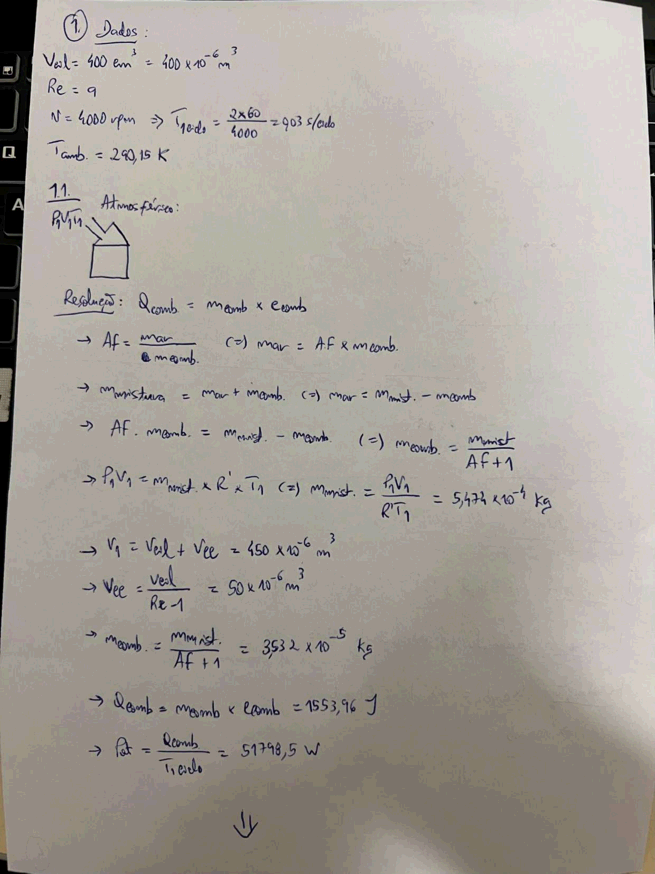 1. Dados:
Vcil = 400 cm³ = 400 × 10⁻⁶ m³
Re = 9
N = 4000 rpm ⇒ T1ciclo = 2×60/4000 = 0,03 s/ciclo
Tamb. = 290,15 K
1.1. Atmosférico:
P1V1T1
Resolução: Qcomb = mcomb × ecomb
→ Af = mar/mcomb. (=) mar = AF × mcomb.
→ mmistura = mar + mcomb. (=) mar = mmist. - mcomb
→ AF . mcomb. = mmist. - mcomb. (=) mcomb. = mmist/AF+1
→ P1V1 = mmist. × R' × T1 (=) mmist. = P1V1/R'T1 = 5,474 × 10⁻⁴ kg
→ V1 = Vcil + Vcc = 450 × 10⁻⁶ m³
→ Vcc = Vcil/Re-1 = 50 × 10⁻⁶ m³
→ mcomb. = mmist./AF+1 = 3,532 × 10⁻⁵ kg
→ Qcomb = mcomb × ecomb = 1553,96 J
→ Pot = Qcomb/T1ciclo = 51798,5 W
Q
A